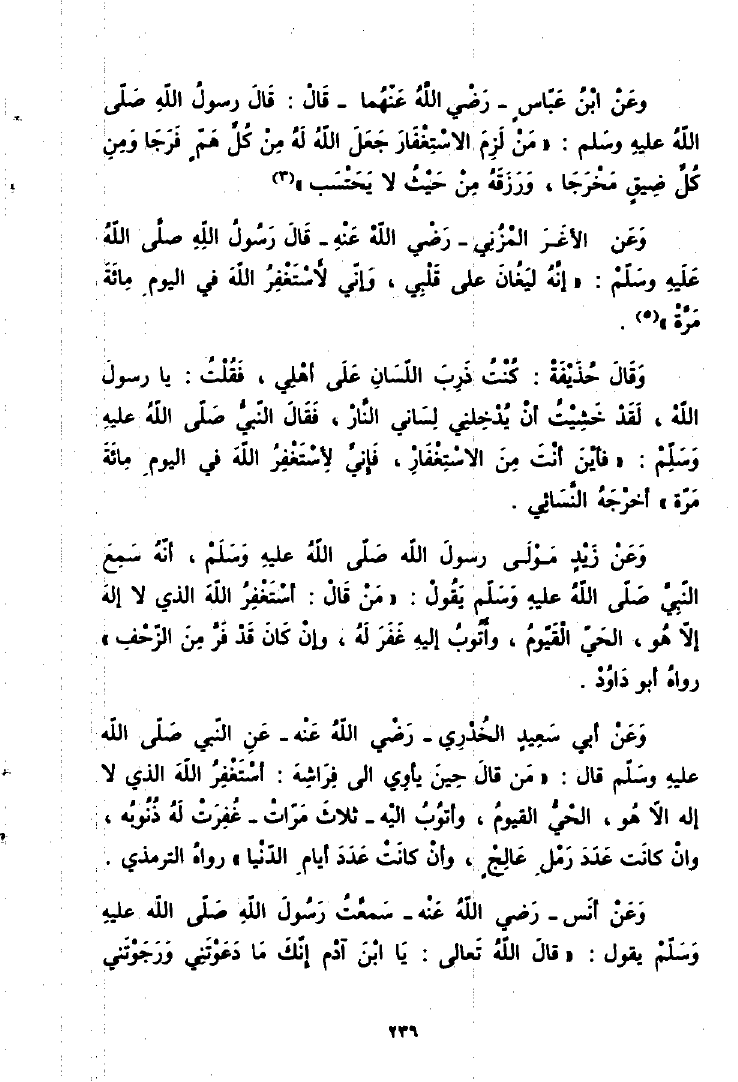 وعَنْ ابْنُ عَبّاسٍ ـ رَضْي اللَّهُ عَنْهُما ـ قَالْ : قَالَ رسولُ اللّهِ صَلّى
اللّهُ عليهِ وسَلم : « مَنْ لَزِمَ الاسْتِغْفَارَ جَعَلَ اللّهُ لَهُ مِنْ كُلِّ هَمٍّ فَرَجَا وَمِنِ
كُلِّ ضِيقٍ مَخْرَجَا ، وَرَزَقَهُ مِنْ حَيْثُ لا يَحْتَسَب »(٣)
وَعَن الأغَـرَ المْزُنِي ـ رَضْي اللّهْ عَنْهِ ـ قَالَ رَسُولُ اللّهِ صلَّى اللّهُ
عَلَيهِ وسَلّمْ : « إنَّهُ لَيَغُانَ على قَلْبِي ، وَإنّي لَأسْتَغْفِرُ اللّهَ في اليوم مِائَةَ
مَرَّةْ »(٥) .
وَقَالَ حُذَيْفَةْ : كُنْتُ ذَرِبَ اللّسَانِ عَلَى أهْلِي ، فَقُلْتُ : يا رسولَ
اللّهْ ، لَقَدْ خَشِيْتُ أنْ يُدْخِلنِي لِسَاني النَّارْ ، فَقَالَ النّبيُّ صَلّى اللّهُ عليهِ
وَسَلّمْ : « فأيْنَ أنْتَ مِنَ الاسْتِغْفَارْ ، فَإنيَّ لِأسْتَغْفِرُ اللّهَ في اليوم مِائَةَ
مَرّة » أخرْجَهُ النَّسَائِي .
وَعَنْ زَيْدٍ مَـوْلَـى رسولَ اللّه صَلّى اللّهُ عليهِ وَسَلَمْ ، أنّهُ سَمِعَ
النّبيُّ صَلّى اللّهُ عليهِ وَسَلّم يَقُولُ : « مَنْ قَالْ : أسْتَغْفِرُ اللّهَ الذي لا إلهَ
إلّا هُو ، الحَيّ الْقَيّومُ ، وأَتُوبُ إليهِ غَفَرَ لَهُ ، وإنْ كَانَ قَدْ فَرَّ مِنَ الزّحْفِ »
رواهُ أبو دَاوُدْ .
وَعَنْ أبي سَعِيدٍ الخُدْرِي ـ رَضْي اللّهُ عَنْه ـ عَنِ النّبي صَلّى اللّه
عليهِ وسَلّم قال : « مَن قالَ حِينَ يأوِي الى فِرَاشِهَ : أسْتَغْفِرُ اللّهَ الذي لا
إله الّا هُو ، الحْيُّ القيومُ ، وأتوُبُ اليْه ـ ثلاثَ مَرّاتْ ـ غُفِرَتْ لَهُ ذُنُوبُه ،
وانْ كانَت عَدَدَ رَمْلِ عَالِجْ ، وأنْ كانَتْ عَدَدَ أيام الدّنْيا » رواهُ الترمذي .
وَعَنْ أنَس ـ رَضي اللّهُ عَنْه ـ سَمعَّتُ رَسُولَ اللّهِ صَلّى اللّه عليهِ
وَسَلّمْ يقول : « قالَ اللّهُ تَعالى : يَا ابْنَ آدْم إنّكَ مَا دَعَوْتَنِي وَرَجَوْتَني
٢٣٩